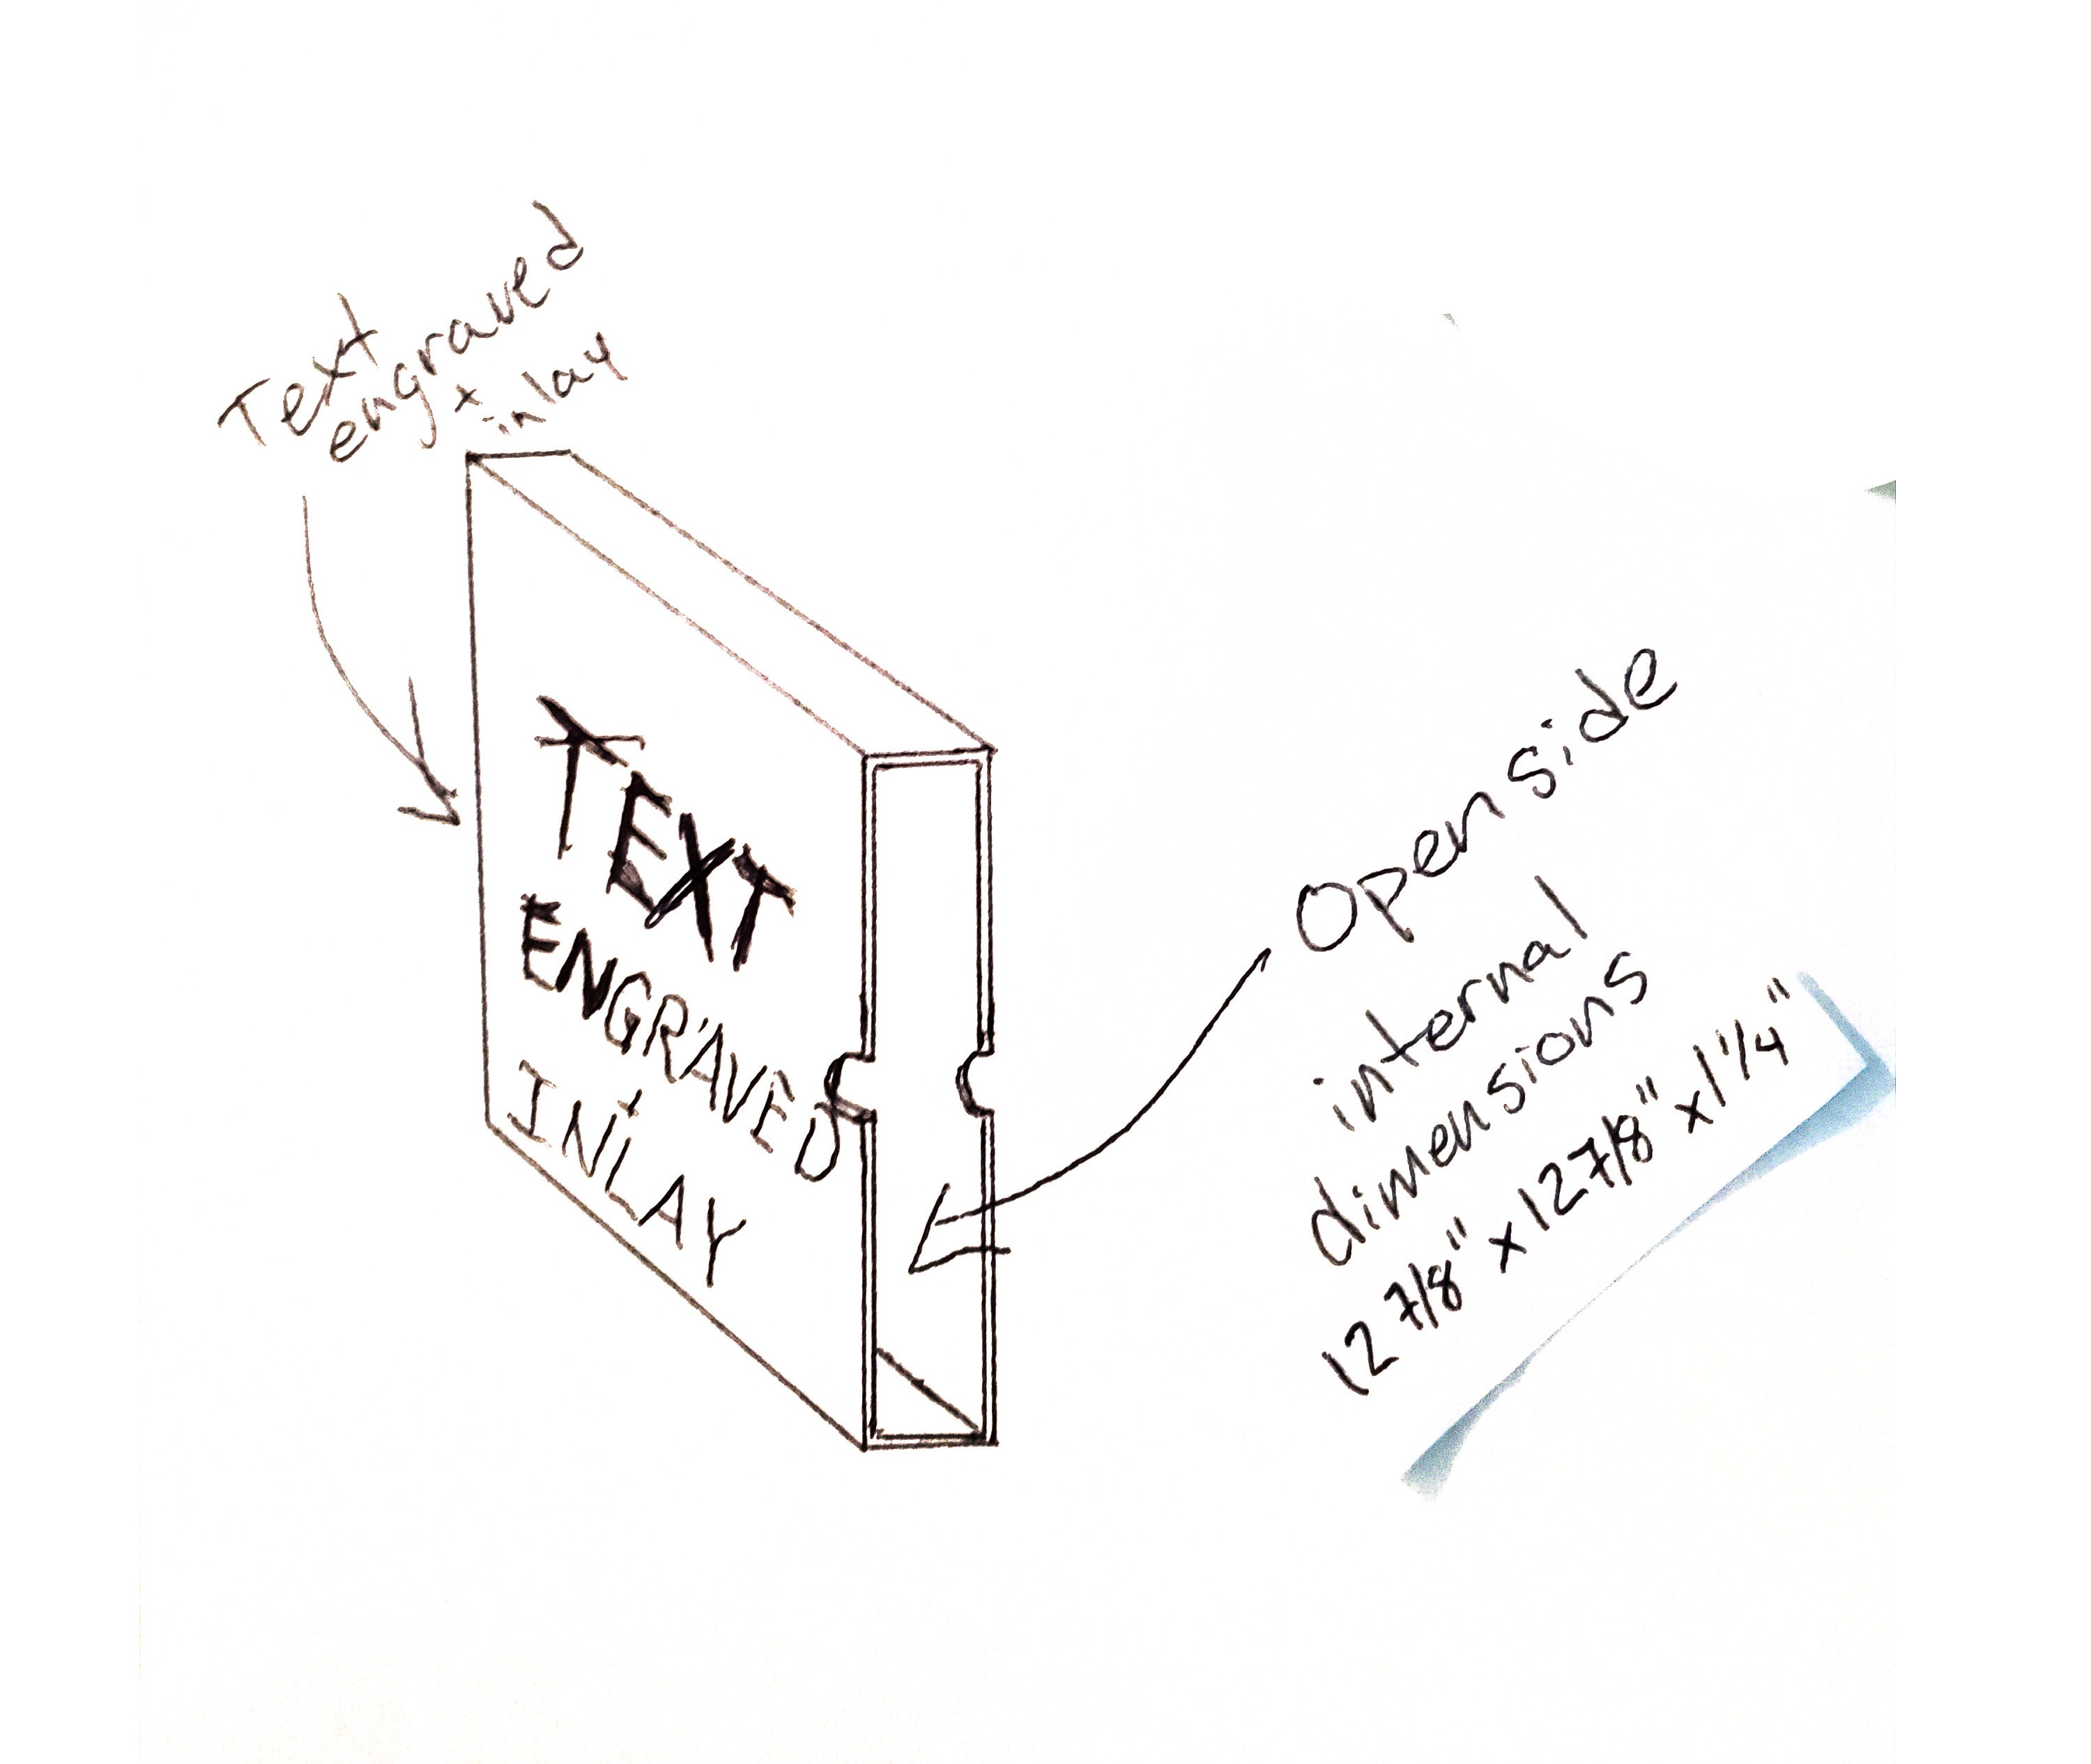 Text
engraved
+
inlay
TEXT
ENGRAVED
+
INLAY
Open side
internal
dimensions
12 7/8" x 12 7/8" x 1 1/4"